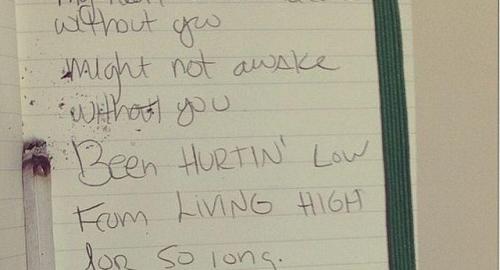 without you
might not awake
without you
Been HURTIN' Low
From LIVING HIGH
for so long.